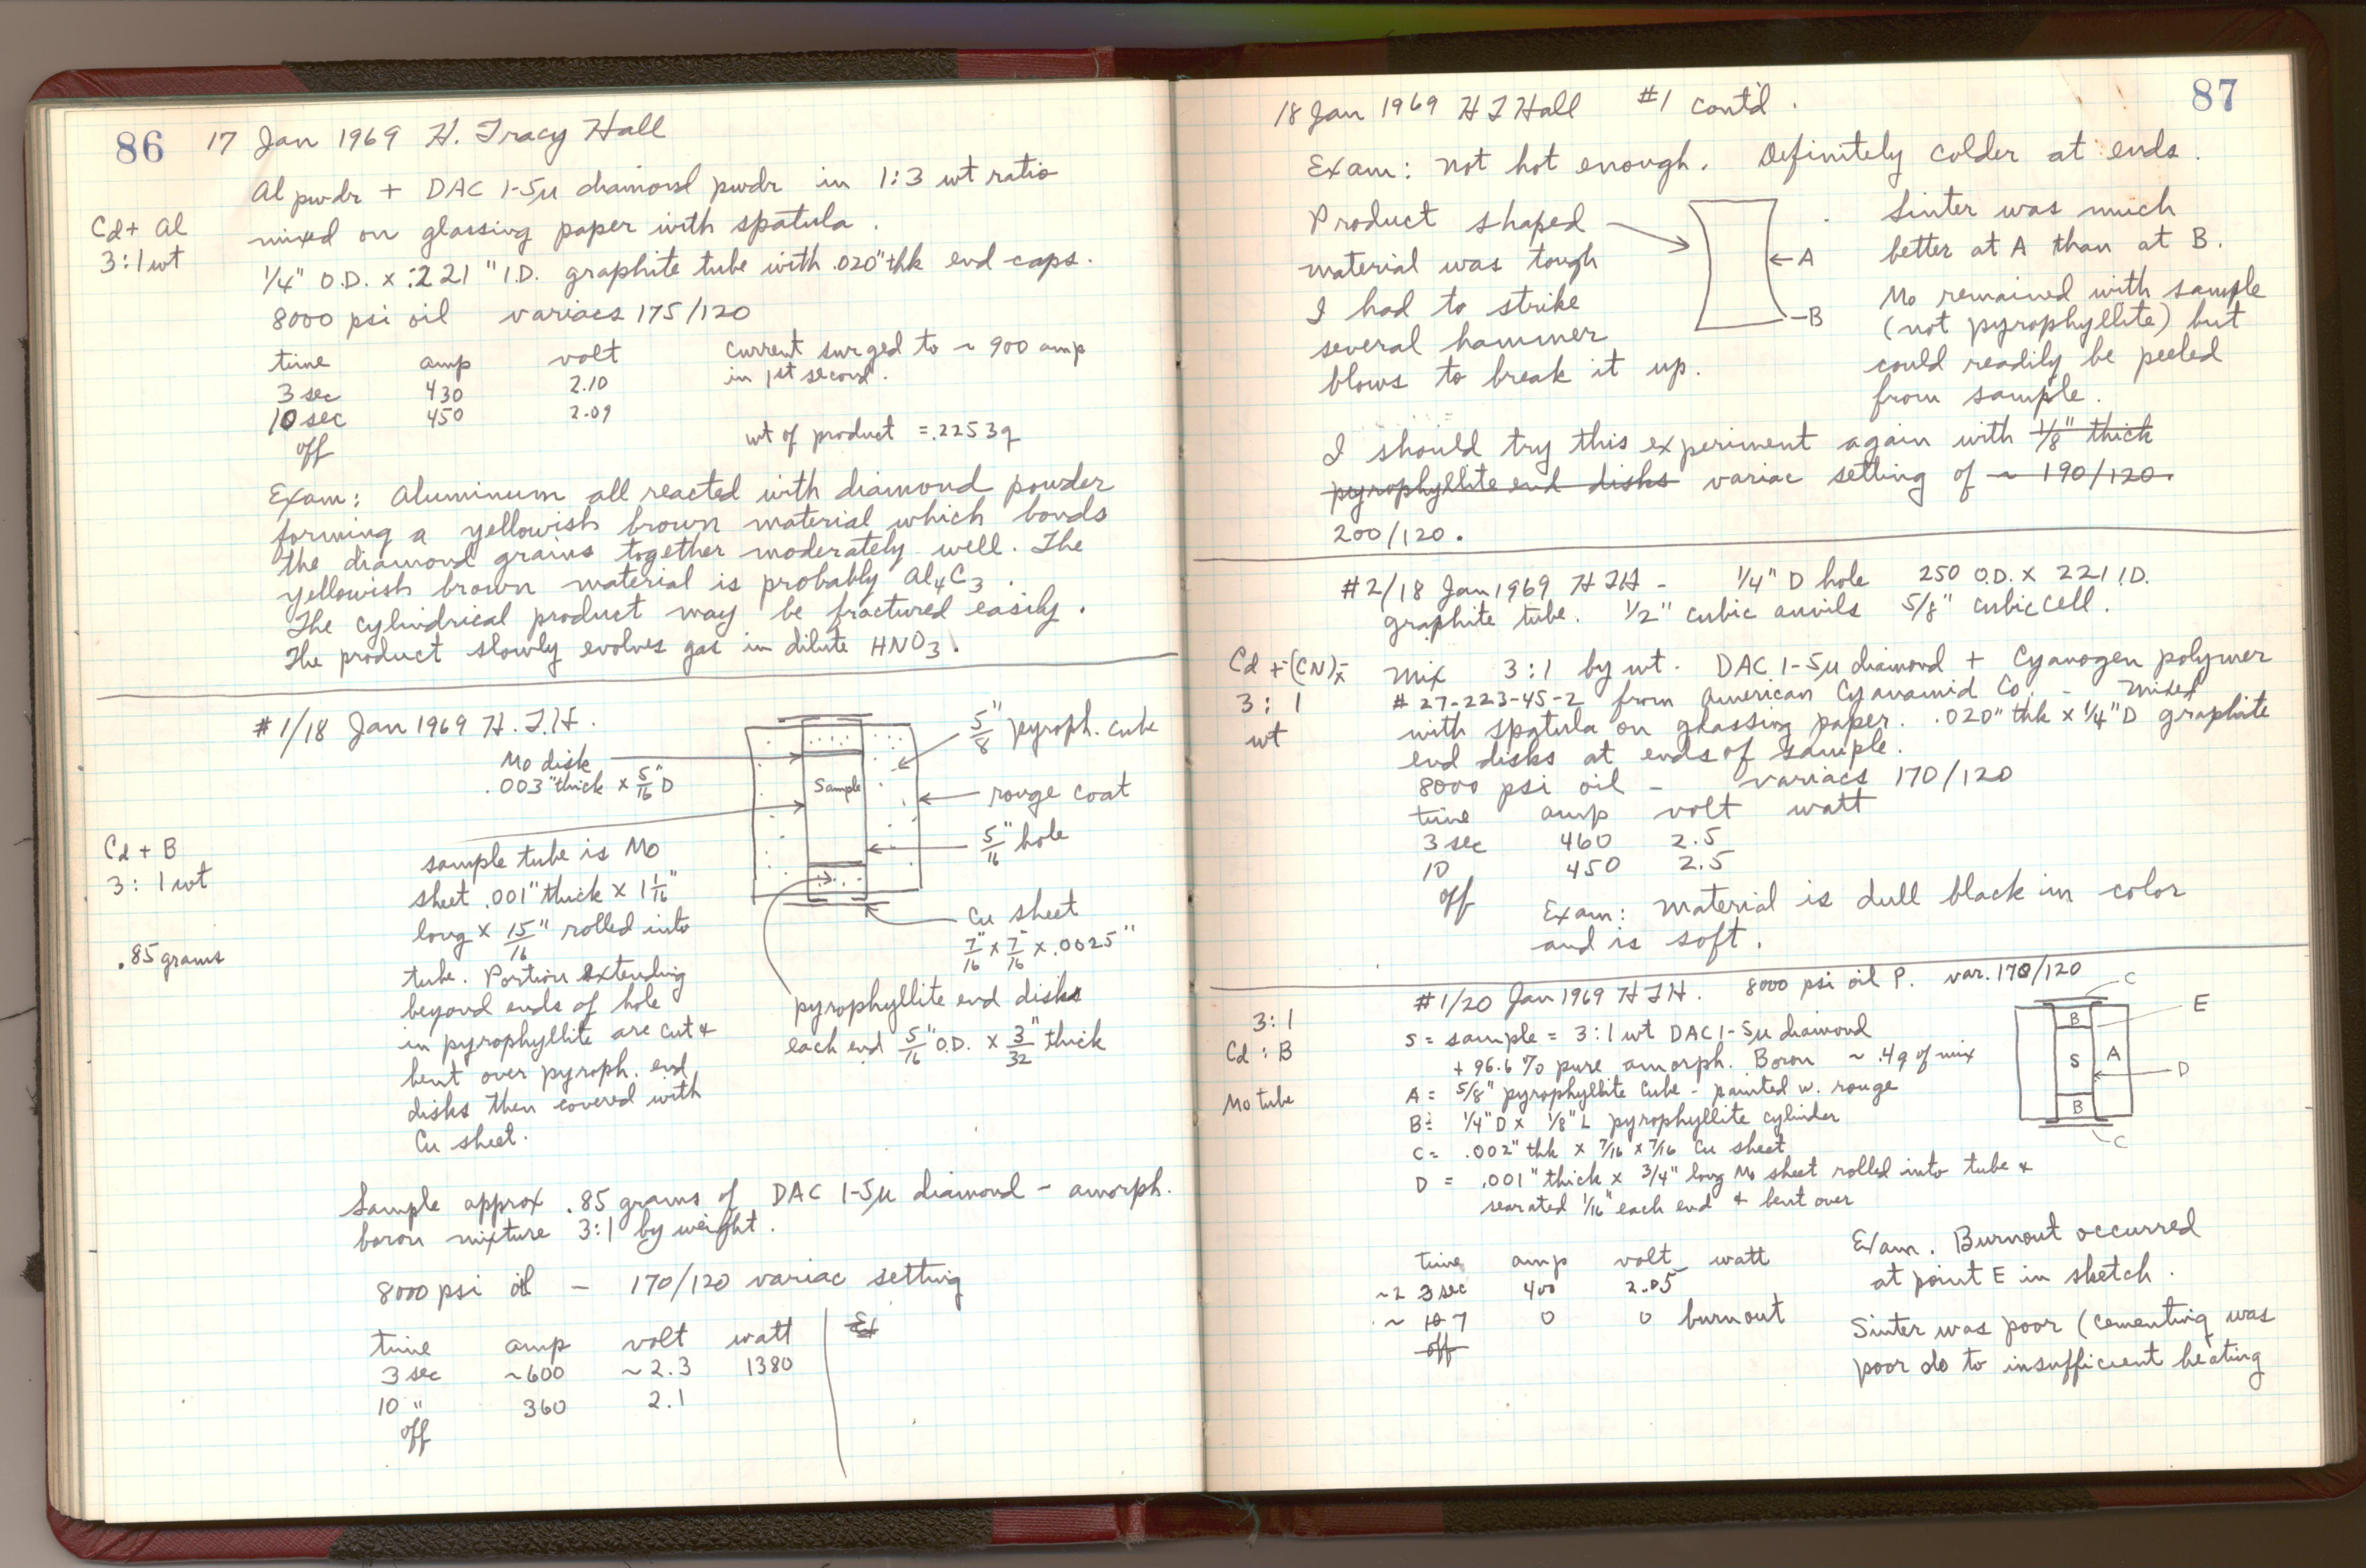 86 17 Jan 1969 H. Tracy Hall
Al pwdr + DAC 1-5µ diamond pwdr in 1:3 wt ratio
Cd + Al
3:1 wt
mixed on glassing paper with spatula.
1/4" O.D. x .221" I.D. graphite tube with .020" thk end caps.
8000 psi oil variacs 175/120
time amp volt
3 sec 430 2.10
10 sec 450 2.09
off
Current surged to ~ 900 amp
in 1st second.
wt of product = .2253g
Exam: Aluminum all reacted with diamond powder
forming a yellowish brown material which bonds
the diamond grains together moderately well. The
yellowish brown material is probably Al4C3.
The cylindrical product may be fractured easily.
The product slowly evolves gas in dilute HNO3.
#1/18 Jan 1969 H.T.H.
Mo disk
.003" thick x 5/16" D
Sample
5/8" pyroph. cube
rouge coat
5/16" hole
Cu sheet
7/16" x 7/16" x .0025"
pyrophyllite end disks
each end 5/16" O.D. x 3/32" thick
Cd + B
3:1 wt
.85 grams
sample tube is Mo
sheet .001" thick x 1 1/16"
long x 15/16" rolled into
tube. Portion extending
beyond ends of hole
in pyrophyllite are cut &
bent over pyroph. end
disks then covered with
Cu sheet.
Sample approx .85 grams of DAC 1-5µ diamond - amorph.
boron mixture 3:1 by weight.
8000 psi oil - 170/120 variac setting
time amp volt watt
3 sec ~600 ~2.3 1380
10 " 360 2.1
off
Ex
87
18 Jan 1969 H T Hall #1 cont'd.
Exam: not hot enough. Definitely colder at ends.
Product shaped
material was tough
I had to strike
several hammer
blows to break it up.
A
B
Sinter was much
better at A than at B.
Mo remained with sample
(not pyrophyllite) but
could readily be peeled
from sample.
I should try this experiment again with 1/8" thick
pyrophyllite end disks variac setting of ~ 190/120.
200/120.
#2/18 Jan 1969 H T H - 1/4" D hole 250 O.D. x 221 I.D.
graphite tube. 1/2" cubic anvils 5/8" cubic cell.
Cd + (CN)x
3:1
wt
Mix 3:1 by wt. DAC 1-5µ diamond + Cyanogen polymer
# 27-223-45-2 from American Cyanamid Co. - mixed
with spatula on glassing paper. .020" thk x 1/4" D graphite
end disks at ends of sample.
8000 psi oil - variacs 170/120
time amp volt watt
3 sec 460 2.5
10 450 2.5
off
Exam: Material is dull black in color
and is soft.
#1/20 Jan 1969 H T H. 8000 psi oil P. var. 170/120
3:1
Cd : B
Mo tube
S = sample = 3:1 wt DAC 1-5µ diamond
+ 96.6% pure amorph. Boron ~ .4g of mix
A = 5/8" pyrophyllite Cube - painted w. rouge
B = 1/4" D x 1/8" L pyrophyllite cylinder
C = .002" thk x 7/16 x 7/16 Cu sheet
D = .001" thick x 3/4" long Mo sheet rolled into tube &
searated 1/16" each end & bent over
C
B
E
S
A
D
B
C
time amp volt watt
~2 3 sec 400 2.05
~ 10 7 0 0 burnout
off
Exam. Burnout occurred
at point E in sketch.
Sinter was poor (cementing was
poor do to insufficient heating